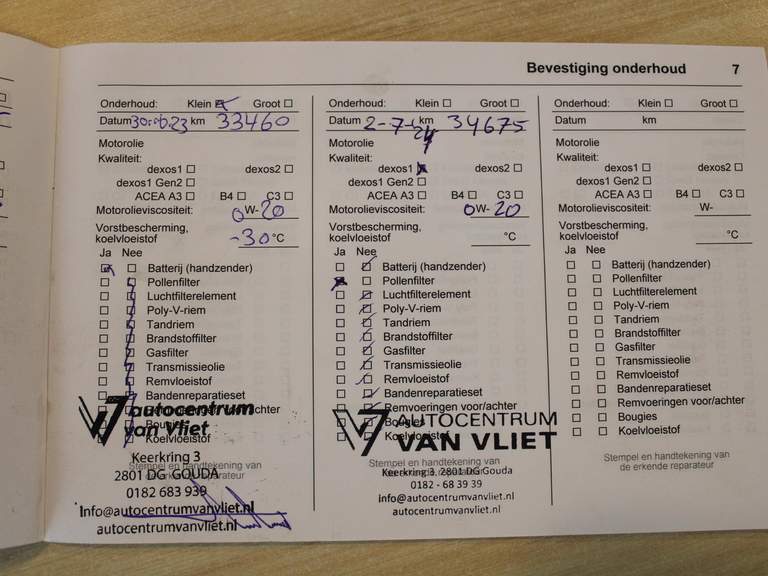 Bevestiging onderhoud 7
Onderhoud: Klein Groot
Datum 30-06.23 km 33460
Motorolie
Kwaliteit:
dexos1 dexos2
dexos1 Gen2
ACEA A3 B4 C3
Motorolieviscositeit: 0W-20
Vorstbescherming,
koelvloeistof -30 °C
Ja Nee
Batterij (handzender)
Pollenfilter
Luchtfilterelement
Poly-V-riem
Tandriem
Brandstoffilter
Gasfilter
Transmissieolie
Remvloeistof
Bandenreparatieset
autocentrum
van Vliet
Bougies
Koelvloeistof
Keerkring 3
Stempel en handtekening van
2801 DG GOUDA
de erkende reparateur
0182 683 939
Info@autocentrumvanvliet.nl
autocentrumvanvliet.nl
Onderhoud: Klein Groot
Datum 2-7-24 km 34675
Motorolie
Kwaliteit:
dexos1 dexos2
dexos1 Gen2
ACEA A3 B4 C3
Motorolieviscositeit: 0W-20
Vorstbescherming,
koelvloeistof °C
Ja Nee
Batterij (handzender)
Pollenfilter
Luchtfilterelement
Poly-V-riem
Tandriem
Brandstoffilter
Gasfilter
Transmissieolie
Remvloeistof
Bandenreparatieset
Remvoeringen voor/achter
Bougies
AUTOCENTRUM
Koelvloeistof
VAN VLIET
Stempel en handtekening van
Keerkring 3, 2801 DG Gouda
0182 - 68 39 39
info@autocentrumvanvliet.nl
autocentrumvanvliet.nl
Onderhoud: Klein Groot
Datum km
Motorolie
Kwaliteit:
dexos1 dexos2
dexos1 Gen2
ACEA A3 B4 C3
Motorolieviscositeit: W-
Vorstbescherming,
koelvloeistof °C
Ja Nee
Batterij (handzender)
Pollenfilter
Luchtfilterelement
Poly-V-riem
Tandriem
Brandstoffilter
Gasfilter
Transmissieolie
Remvloeistof
Bandenreparatieset
Remvoeringen voor/achter
Bougies
Koelvloeistof
Stempel en handtekening van
de erkende reparateur